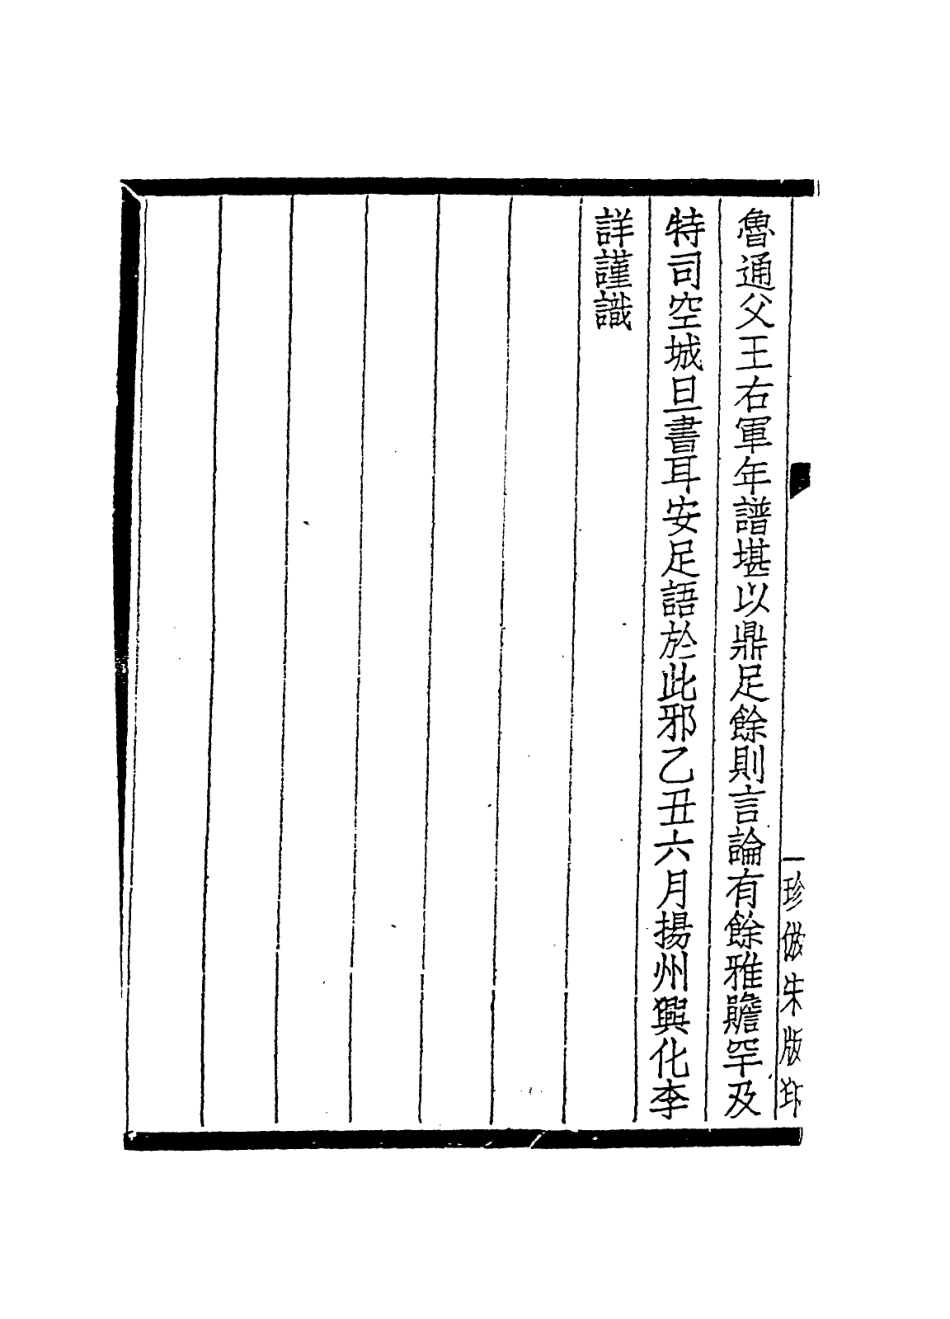 魯通父王右軍年譜堪以鼎足餘則言論有餘雅贍罕及
特司空城旦書耳安足語於此邪乙丑六月揚州興化李
詳謹識
珍倣宋版印